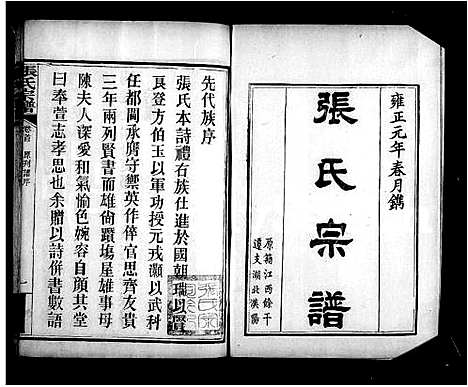 雍正元年春月鐫
張氏宗譜
原籍江西餘干
遷支湖北漢陽
先代族序
張氏本詩禮右族仕進於國朝瑞以賢
良登方伯玉以軍功授元戎灝以武科
任都閫承勝守禦英作倅官思齊友貴
三年兩列賢書而雄劍躋塲屋雄事母
陳夫人深愛和氣愉色婉容自顏其堂
曰奉萱志孝思也余贈以詩併書數語
張氏宗譜
卷首
原刊譜序
一